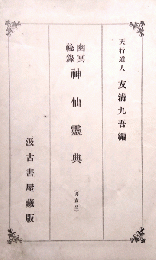 天行道人 友清九吾編
幽冥秘錄
神仙靈典
汲古書屋藏版